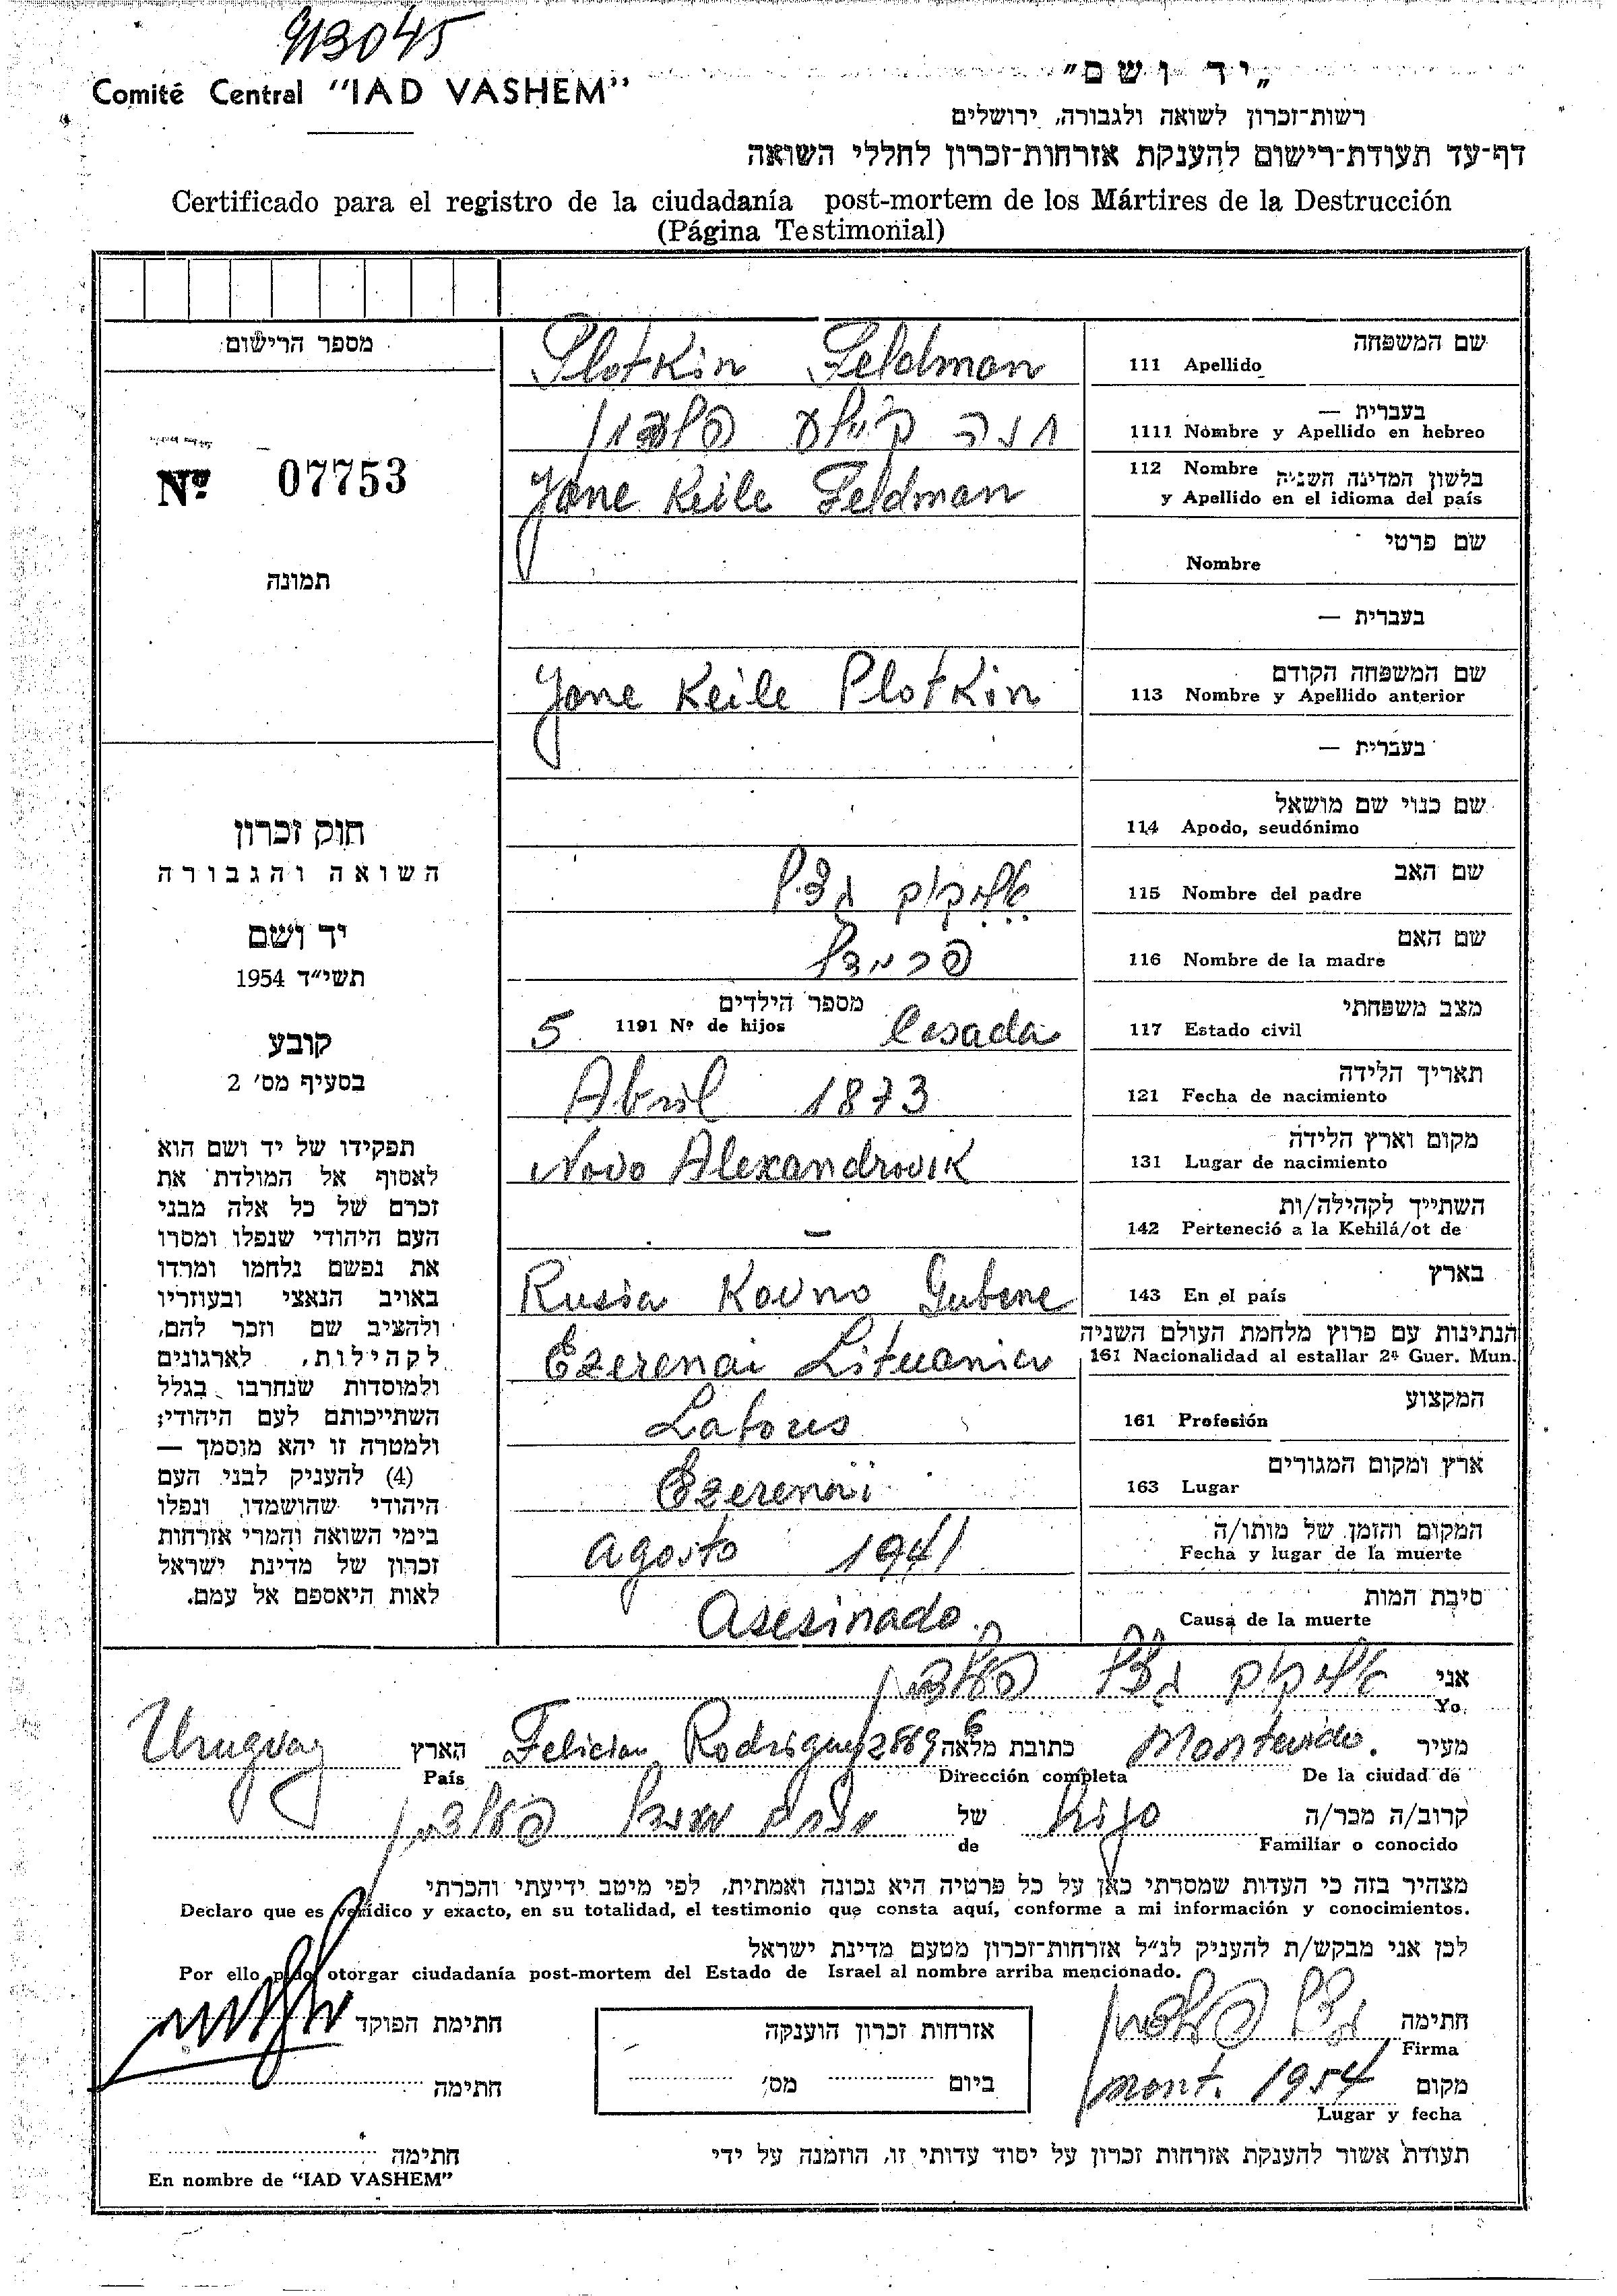 913045
Comité Central "IAD VASHEM"
"יד ושם"
רשות-זכרון לשואה ולגבורה, ירושלים
דף-עד תעודת-רישום להענקת אזרחות-זכרון לחללי השואה
Certificado para el registro de la ciudadanía post-mortem de los Mártires de la Destrucción
(Página Testimonial)
מספר הרישום
Nº 07753
תמונה
חוק זכרון
השואה והגבורה
יד ושם
תשי״ד 1954
קובע
בסעיף מס׳ 2
תפקידו של יד ושם הוא
לאסוף אל המולדת את
זכרם של כל אלה מבני
העם היהודי שנפלו ומסרו
את נפשם נלחמו ומרדו
באויב הנאצי ובעוזריו
ולהציב שם וזכר להם,
לקהילות, לארגונים
ולמוסדות שנחרבו בגלל
השתייכותם לעם היהודי;
ולמטרה זו יהא מוסמך —
(4) להעניק לבני העם
היהודי שהושמדו ונפלו
בימי השואה והמרי אזרחות
זכרון של מדינת ישראל
לאות היאספם אל עמם.
שם המשפחה
111 Apellido
Plotkin Feldman
בעברית —
1111 Nombre y Apellido en hebreo
חנה קיילע פלדמן
112 Nombre בלשון המדינה השניה
y Apellido en el idioma del país
Jane Keile Feldman
שם פרטי
Nombre
בעברית —
שם המשפחה הקודם
113 Nombre y Apellido anterior
Jane Keile Plotkin
בעברית —
שם כנוי שם מושאל
114 Apodo, seudónimo
שם האב
115 Nombre del padre
שם האם
116 Nombre de la madre
מצב משפחתי
117 Estado civil
Casada
מספר הילדים
1191 Nº de hijos
5
תאריך הלידה
121 Fecha de nacimiento
Abril 1873
מקום וארץ הלידה
131 Lugar de nacimiento
Novo Alexandrovik
השתייך לקהילה/ות
142 Perteneció a la Kehilá/ot de
—
בארץ
143 En el país
Rusia Kovno Gubene
הנתינות עם פרוץ מלחמת העולם השניה
161 Nacionalidad al estallar 2ª Guer. Mun.
Ezerenai Lituania
המקצוע
161 Profesión
Labores
ארץ ומקום המגורים
163 Lugar
Ezerenai
המקום והזמן של מותו/ה
Fecha y lugar de la muerte
agosto 1941
סיבת המות
Causa de la muerte
Asesinado
אני
Yo
מעיר Montevideo. כתובת מלאה Felician Rodriguez 2889 הארץ Uruguay
De la ciudad de Dirección completa País
קרוב/ה מכר/ה hijo של
Familiar o conocido de
מצהיר בזה כי העדות שמסרתי כאן על כל פרטיה היא נכונה ואמתית, לפי מיטב ידיעתי והכרתי
Declaro que es verídico y exacto, en su totalidad, el testimonio que consta aquí, conforme a mi información y conocimientos.
לכן אני מבקש/ת להעניק לנ״ל אזרחות-זכרון מטעם מדינת ישראל
Por ello pido otorgar ciudadanía post-mortem del Estado de Israel al nombre arriba mencionado.
חתימה
Firma
מקום mont. 1954
Lugar y fecha
אזרחות זכרון הוענקה
ביום מס׳
חתימת הפוקד
חתימה
תעודת אשור להענקת אזרחות זכרון על יסוד עדותי זו, הוזמנה על ידי
חתימה
En nombre de "IAD VASHEM"